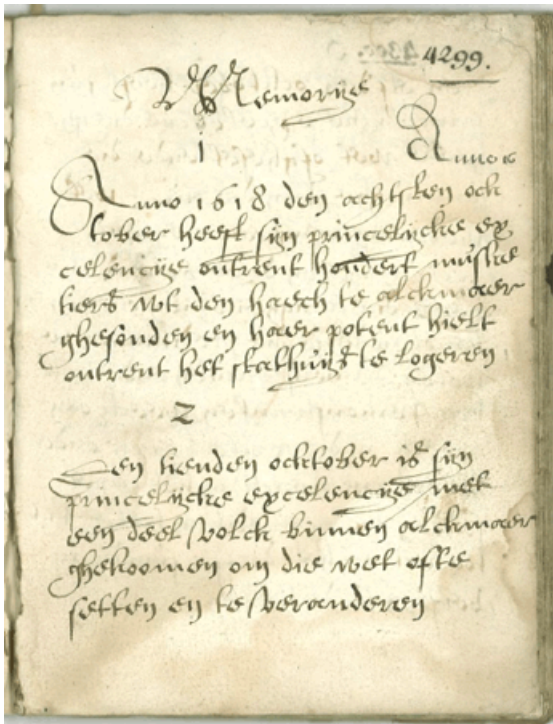 4299.
Memorije
1
Anno
Anno 1618 den achtsten ock
tober heeft sijn princelijcke ex
celencije ontrent hondert muske
tiers wt den haech te alckmaer
ghesonden en haer potent hielt
ontrent het stathuijs te logeren
2
Den tienden ocktober is sijn
princelijcke excelencije met
een deel volck binnen alckmaer
ghekoomen om die wet ofte
setten en te veranderen